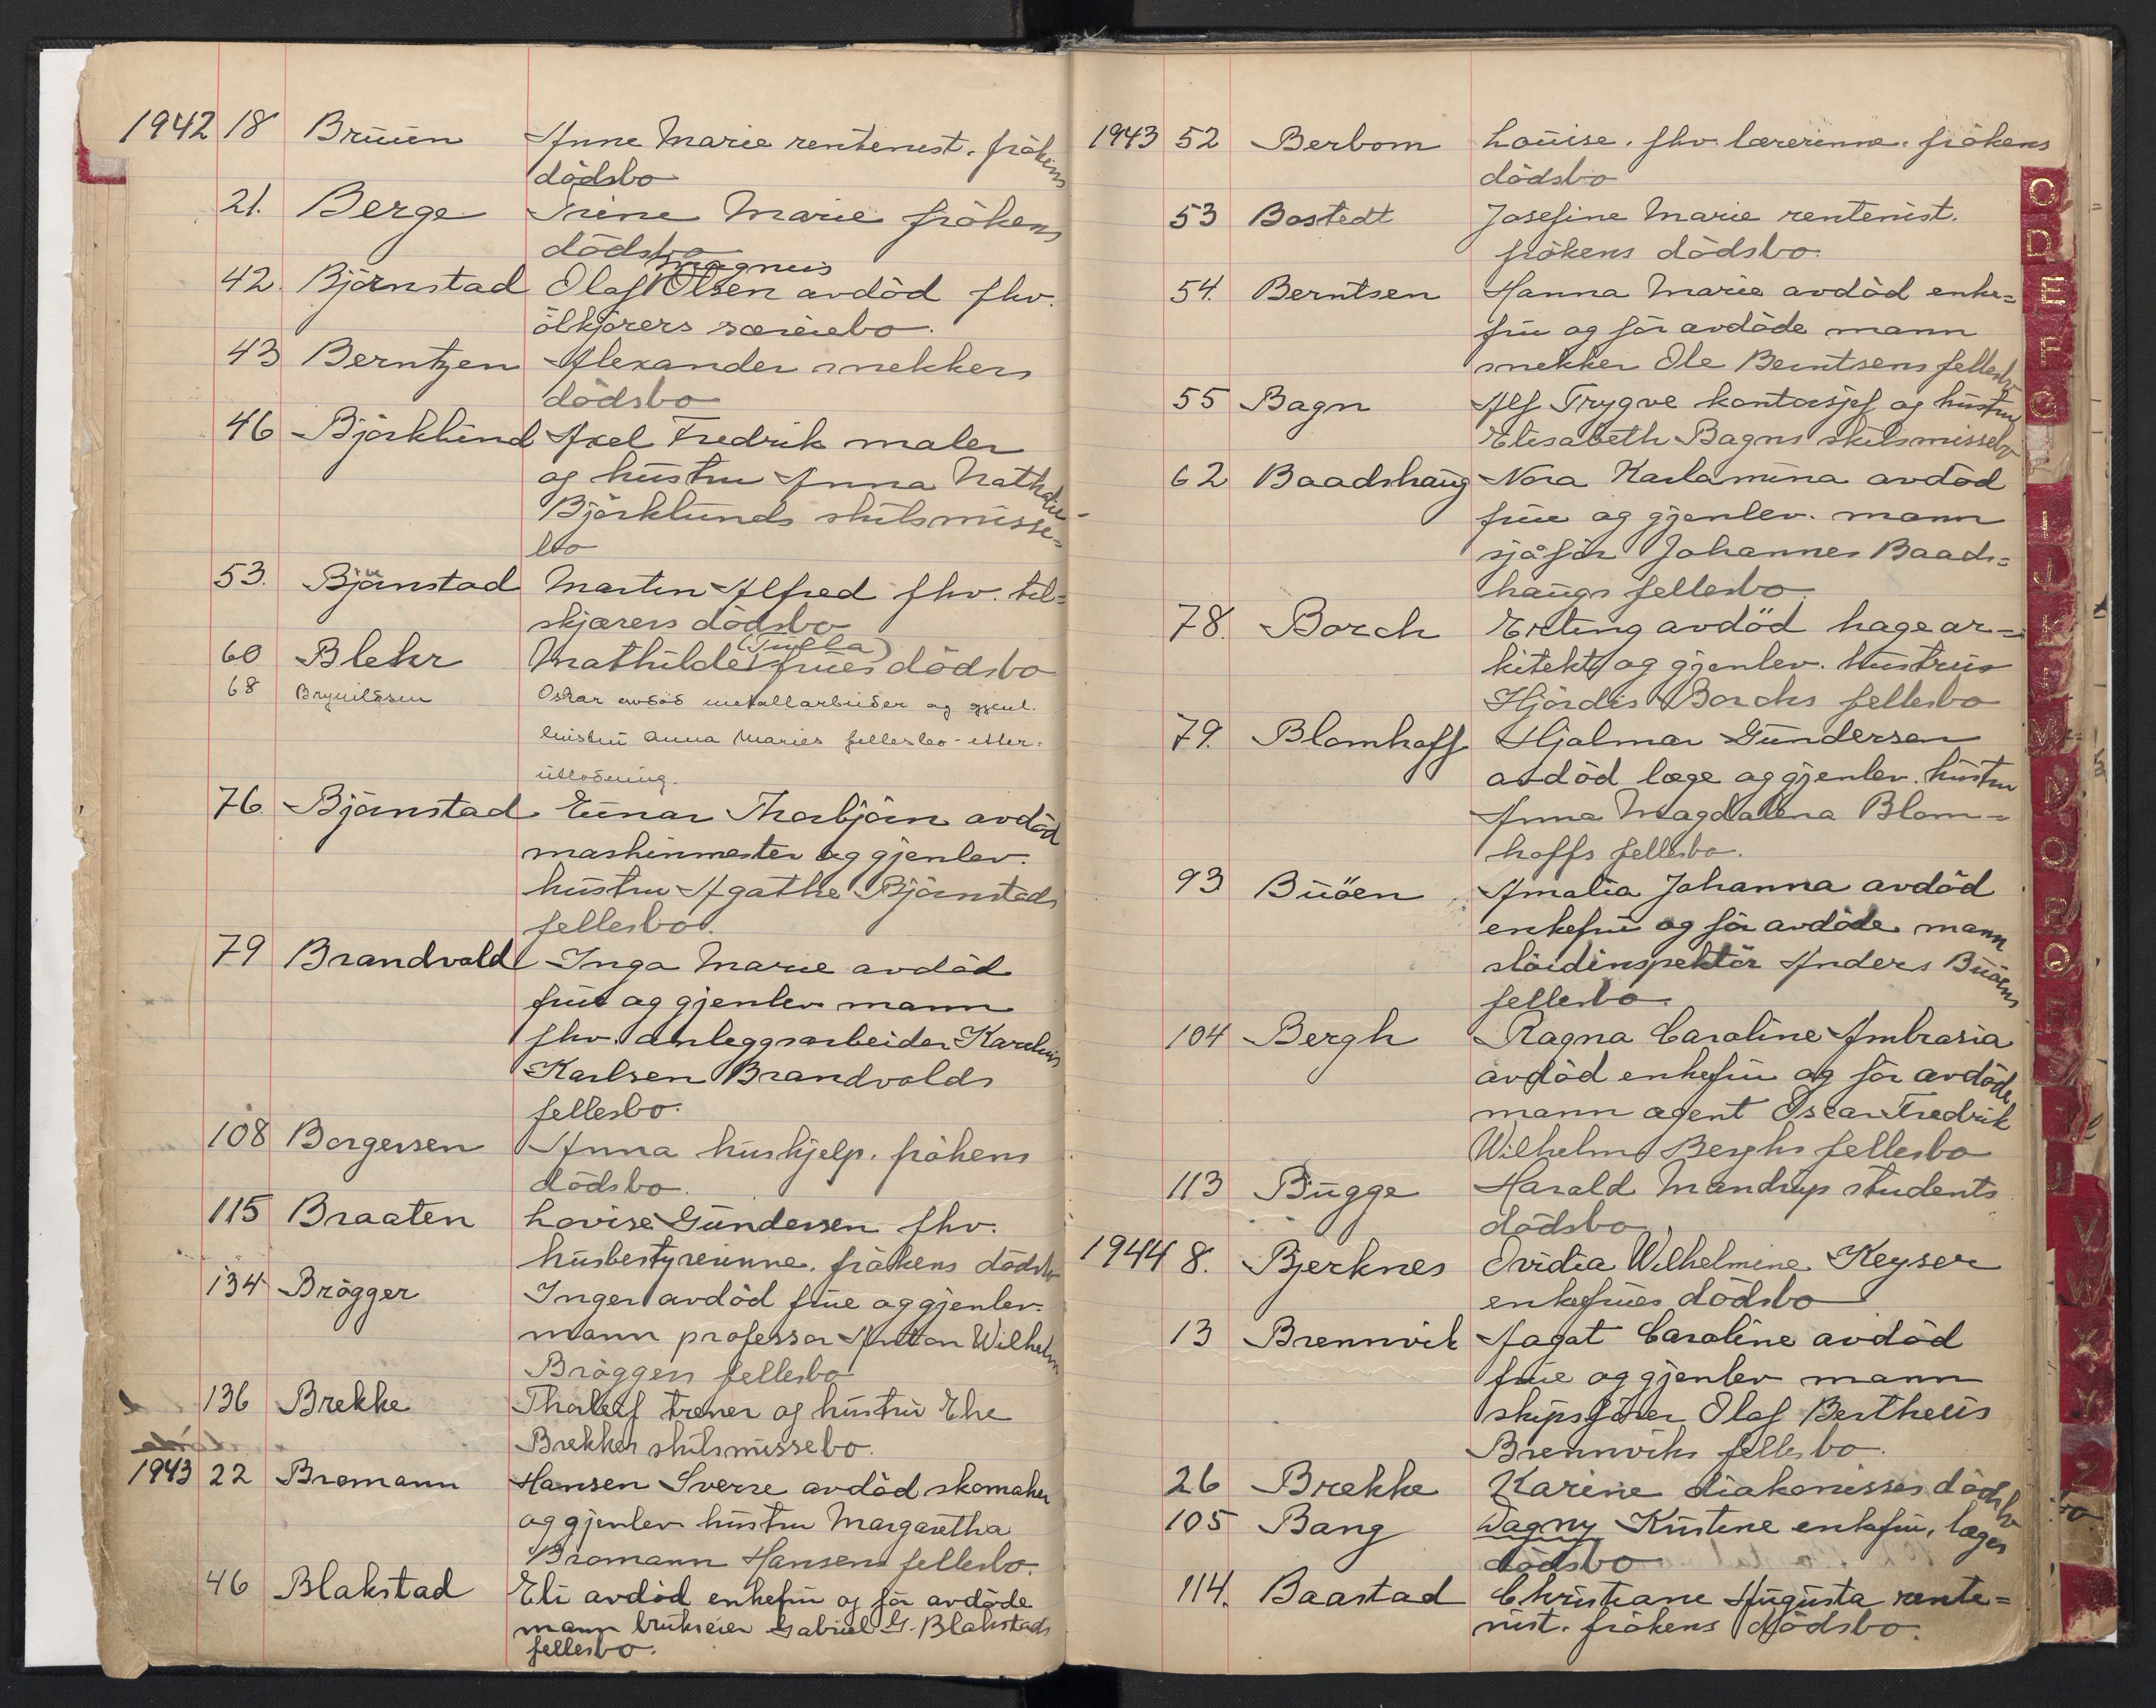 1942 18 Bruun Anne Marie rentenist. frökens
dödsbo
21. Berge Trine Marie frökens
dödsbo
Magnus
42. Björnstad Olaf Olsen avdöd fhv.
ölkjörers særeiebo.
43 Berntzen Alexander snekkers
dödsbo
46 Björklund Axel Fredrik maler
og hustru Anna Nathalie
Björklunds skilsmisse=
bo
53. Björnstad Martin Alfred fhv. til=
skjærers dödsbo
(Tulla)
60 Blehr Mathilde frues dödsbo
68 Brynildsen Oskar avdöd metallarbeider og gjenl.
hustru Anna Maries fellesbo - etter-
utlodning.
76. Björnstad Einar Thorbjörn avdöd
maskinmester og gjenlev.
hustru Agathe Björnstads
fellesbo.
79 Brandvold Inga Marie avdöd
frue og gjenlev mann
fhv. anleggsarbeider Karelius
Karlsen Brandvolds
fellesbo.
108 Borgersen Anna hushjelp. frökens
dödsbo.
115 Braaten Lovise Gundersen fhv.
husbestyrerinne. frökens dödsbo
134 Brögger Inger avdöd frue og gjenlev.
mann professor Anton Wilhelm
Bröggers fellesbo
136 Brekke Thorleif trener og hustru Else
Brekkes skilsmissebo.
1943 22 Bromann Hansen Sverre avdöd skomaker
og gjenlev hustru Margaretha
Bromann Hansens fellesbo.
46 Blakstad Eli avdöd enkefru og för avdöde
mann brukseier Gabriel G. Blakstads
fellesbo.
1943 52 Berbom Louise. fhv. lærerinne. frökens
dödsbo
53 Bostedt Josefine Marie rentenist.
frökens dödsbo.
54. Berntsen Hanna Marie avdöd enke=
fru og för avdöde mann
snekker Ole Berntsens fellesbo
55 Bagn Alf Trygve kontorsjef og hustru
Elisabeth Bagns skilsmissebo
62 Baadshaug Nora Karlamina avdöd
frue og gjenlev. mann
sjåför Johannes Baads=
haugs fellesbo.
78. Borch Erling avdöd hagear=
kitekt og gjenlev. hustrus
Hjördis Borchs fellesbo
79. Blomhoff Hjalmar Gundersen
avdöd læge og gjenlev. hustru
Anna Magdalena Blom=
hoffs fellesbo.
93 Buöen Amalia Johanna avdöd
enkefru og för avdöde mann
slöidinspektör Anders Buöens
fellesbo.
104 Bergh Ragna Caroline Ambrosia
avdöd enkefru og för avdöde
mann agent Oscar Fredrik
Wilhelm Berghs fellesbo
113 Bugge Harald Mandrup students
dödsbo.
1944 8. Bjerknes Ovidia Wilhelmine Keyser
enkefrues dödsbo
13 Brennvik Aagot Caroline avdöd
frue og gjenlev mann
skipsförer Olaf Bertheus
Brennviks fellesbo.
26 Brekke Karine diakonisses dödsbo
105 Bang Dagny Kirstine enkefru, læges
dödsbo
114. Baastad Christiane Augusta rente=
nist. frökens dödsbo.
C
D
E
F
G
I
J
K
L
M
N
O
P
Q
V
W
X
Y
Z